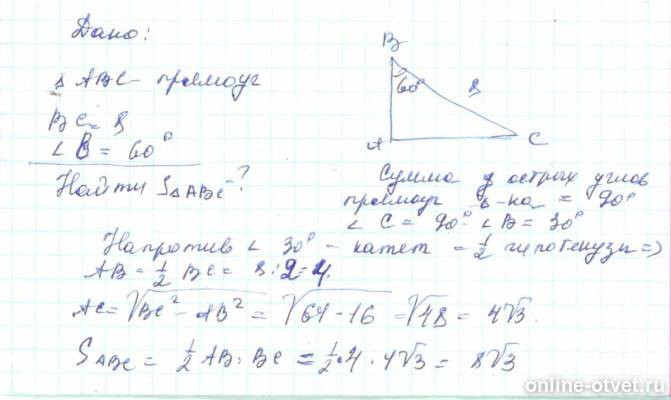 Дано:
Δ ABC - прямоуг
BC = 8
∠ B = 60°
Найти S△ABC - ?
B
60°
8
A
C
Сумма 2 острых углов
прямоуг Δ-ка = 90°
∠ C = 90° - ∠ B = 30°
Напротив ∠ 30° - катет = 1/2 гипотенузы =>
AB = 1/2 BC = 8 : 2 = 4.
AC = √BC² - AB² = √64 - 16 = √48 = 4√3.
S ABC = 1/2 AB · BC = 1/2 · 4 · 4√3 = 8√3
online-otvet.ru